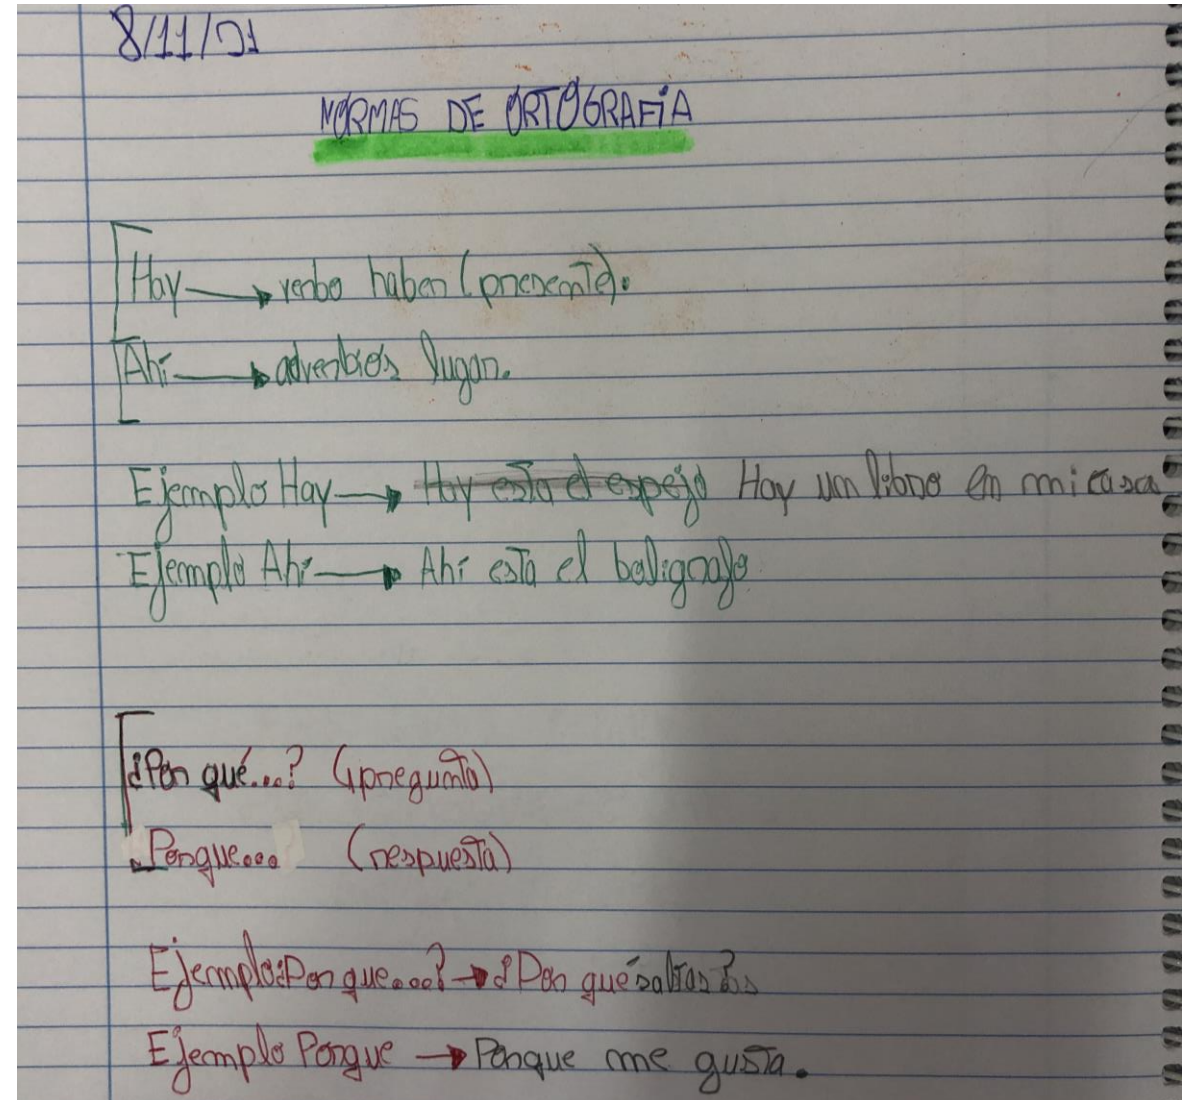 8/11/21
NORMAS DE ORTOGRAFÍA
Hay → verbo haber (presente).
Ahí → adverbios lugar.
Ejemplo Hay → Hay esta el espejo Hay un libro en mi casa
Ejemplo Ahí → Ahí esta el boligrafo
¿Por qué...? (pregunta)
Porque... (respuesta)
Ejemplo: ¿Por que...? → ¿Por qué saltas?
Ejemplo Porque → Porque me gusta.